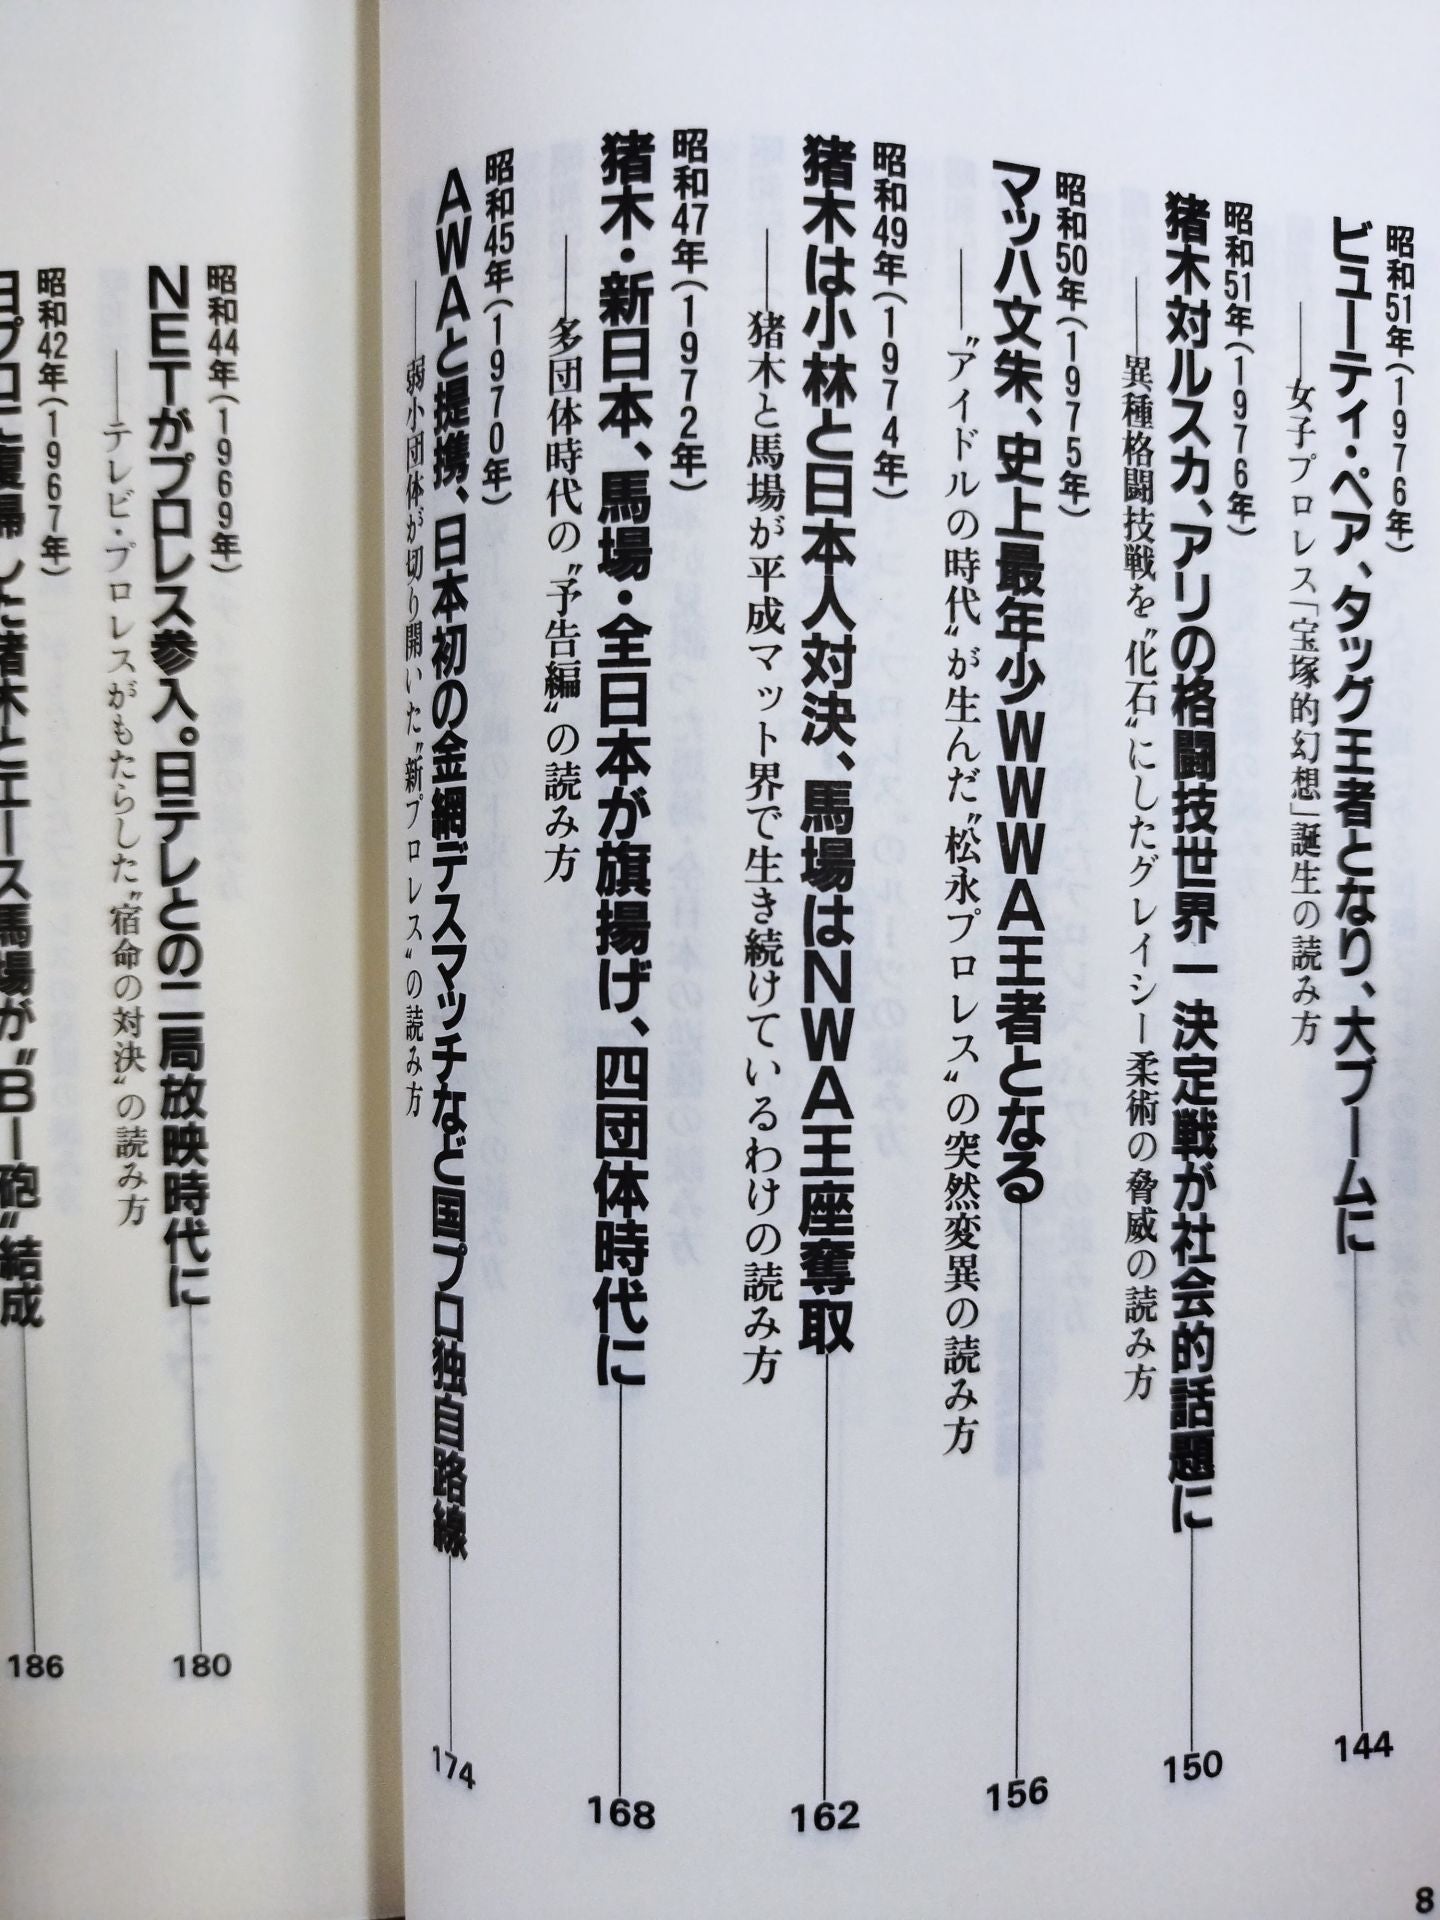 昭和51年(1976年)
ビューティ・ペア、タッグ王者となり、大ブームに
144
――女子プロレス「宝塚的幻想」誕生の読み方
昭和51年(1976年)
猪木対ルスカ、アリの格闘技世界一決定戦が社会的話題に
150
――異種格闘技戦を〝化石〟にしたグレイシー柔術の脅威の読み方
昭和50年(1975年)
マッハ文朱、史上最年少WWWA王者となる
156
――〝アイドルの時代〟が生んだ〝松永プロレス〟の突然変異の読み方
昭和49年(1974年)
猪木は小林と日本人対決、馬場はNWA王座奪取
162
――猪木と馬場が平成マット界で生き続けているわけの読み方
昭和47年(1972年)
猪木・新日本、馬場・全日本が旗揚げ、四団体時代に
168
――多団体時代の〝予告編〟の読み方
昭和45年(1970年)
AWAと提携、日本初の金網デスマッチなど国プロ独自路線
174
――弱小団体が切り開いた〝新プロレス〟の読み方
8
昭和44年(1969年)
NETがプロレス参入。日テレとの二局放映時代に
180
――テレビ・プロレスがもたらした〝宿命の対決〟の読み方
昭和42年(1967年)
日プロに復帰した猪木とエース馬場が〝BI砲〟結成
186